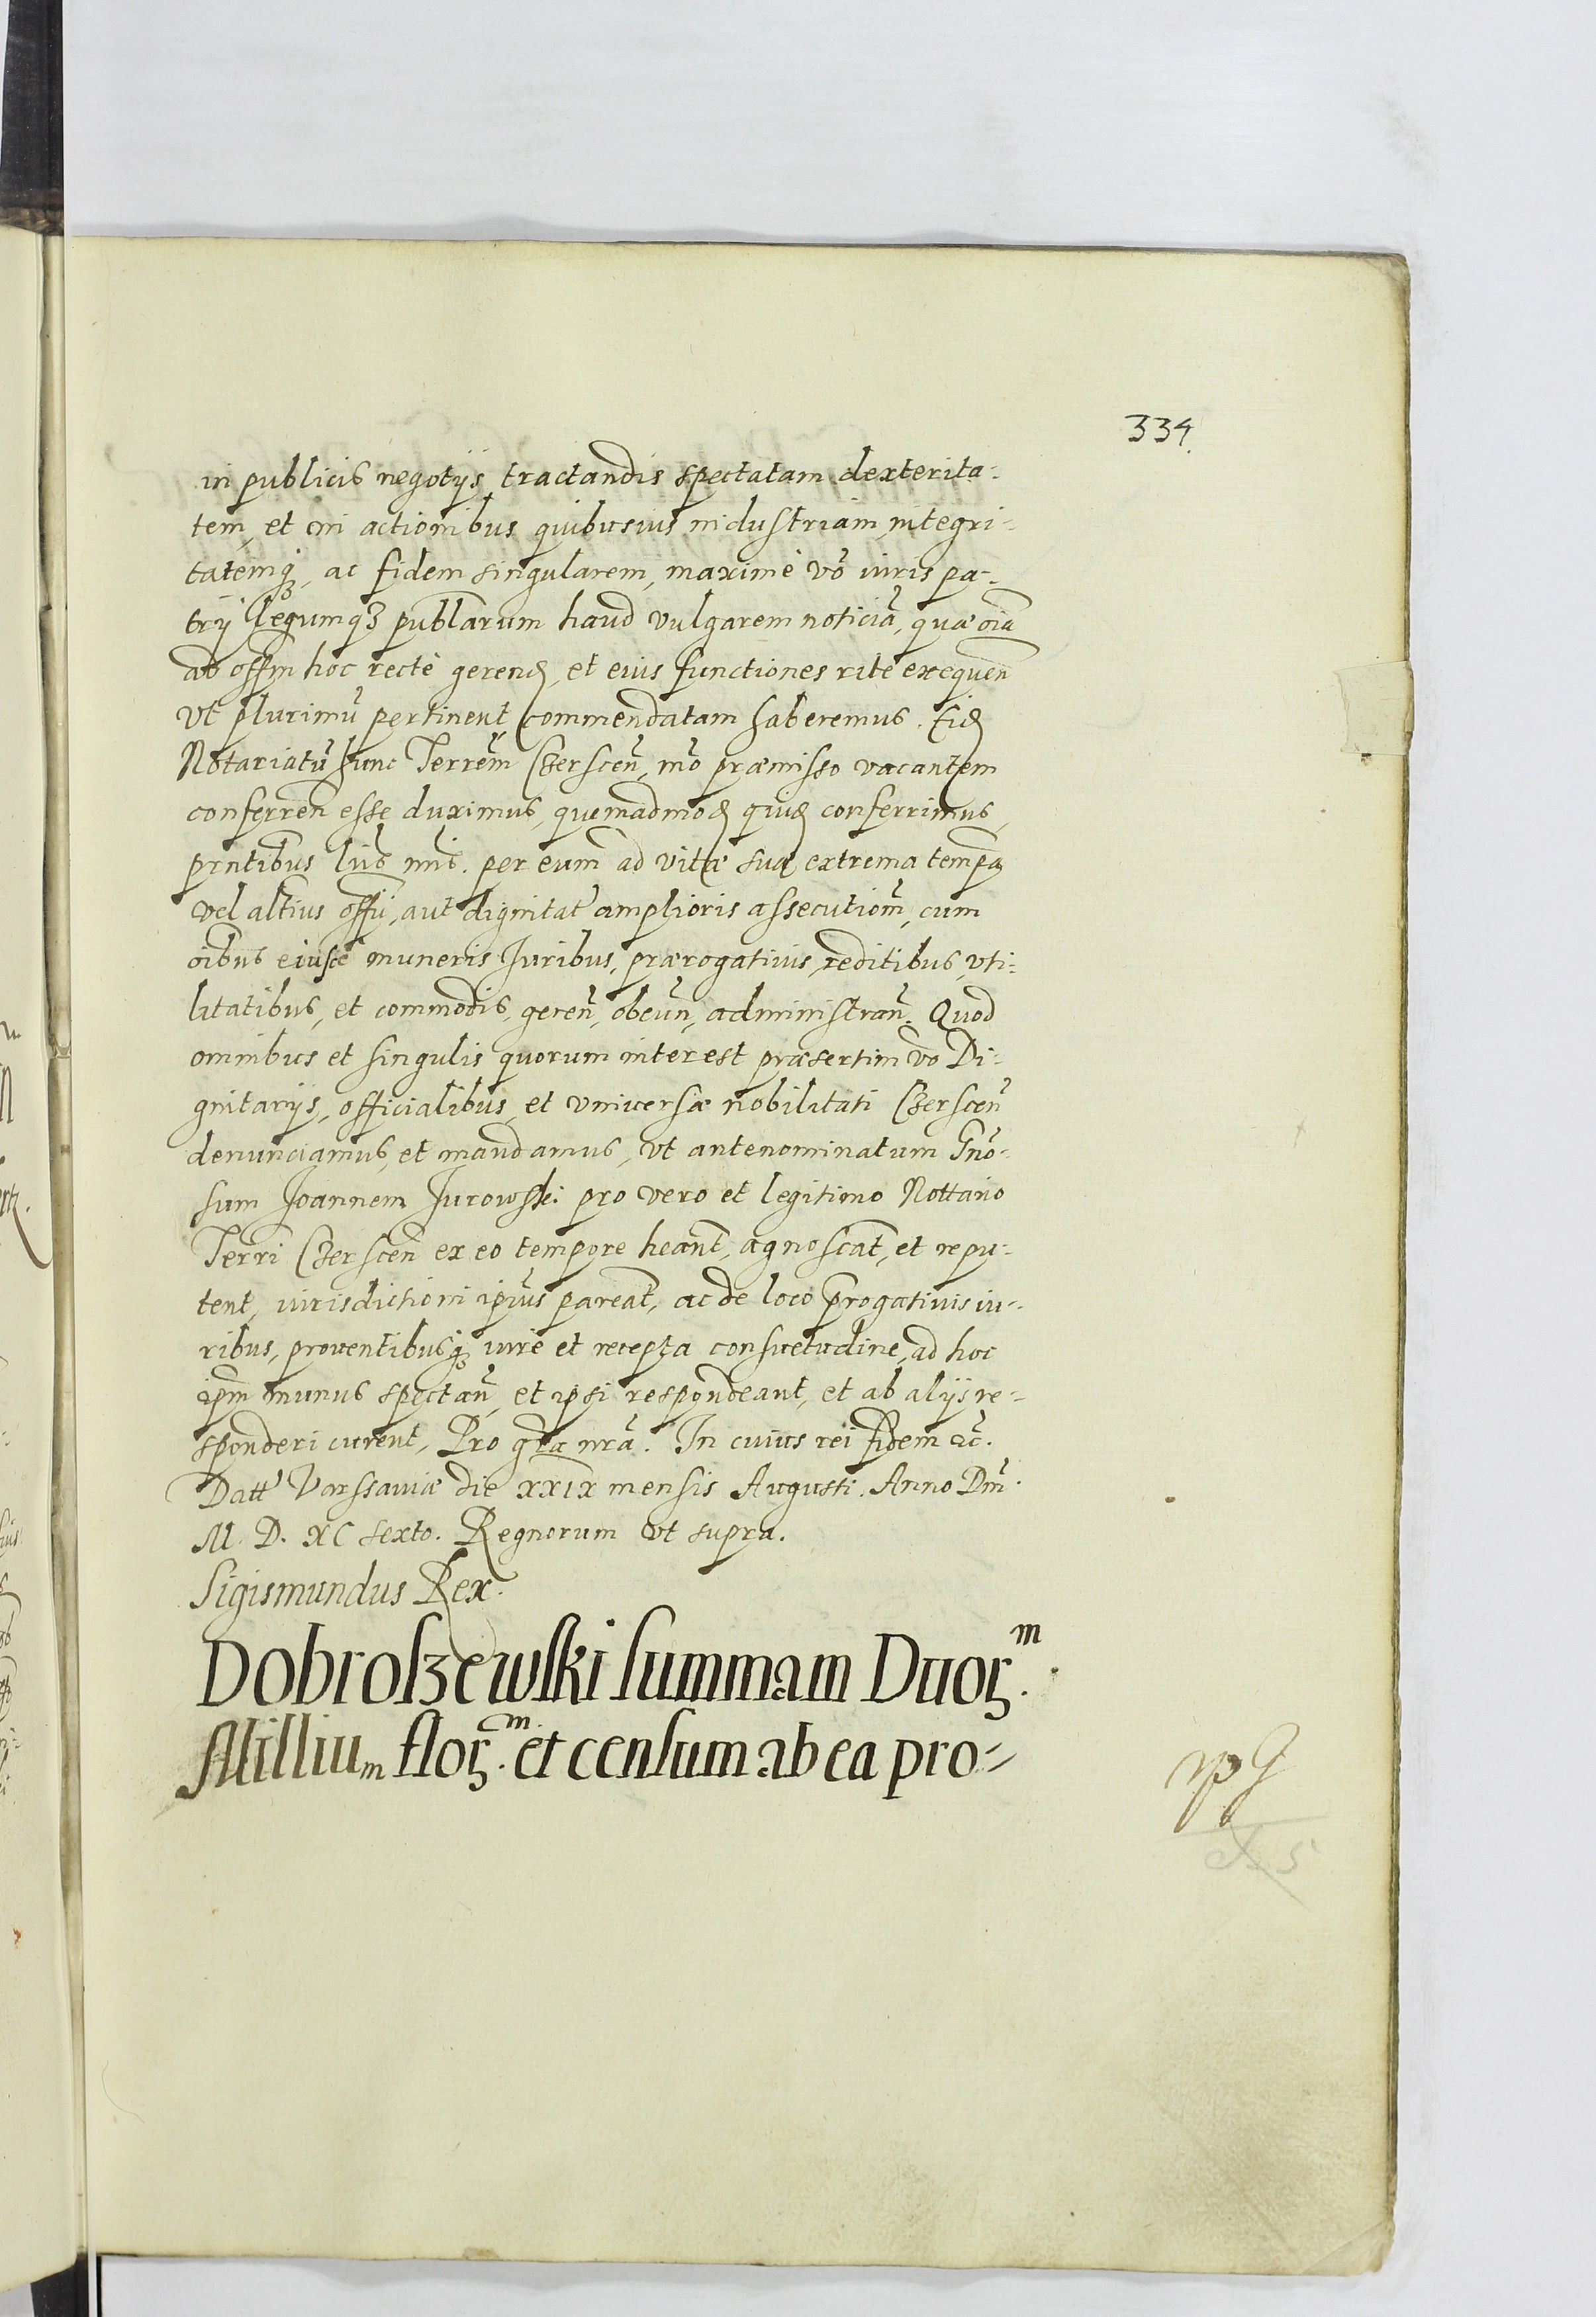 334.
in publicis negotijs tractandis spectatam dexterita-
tem, et in actionibus quibusuis industriam, integri-
tatemq₃, ac fidem singularem, maximè vō iuris pa-
trij legumq₃ publ̄arum haud vulgarem noticiā, quæ oīa
ad offm̄ hoc rectè gerend, et eius functiones ritè exequen̄
vt plurimū pertinent, commendatam haberemus. Eid
Notariatū hunc Terrem̄ Czerscen̄, mō præmisso vacantem
conferren̄ esse duximus, quemadmod quid conferrimus,
prn̄tibus lris nris. per eum ad vitæ suæ extrema tempa
vel altius offij, aut dignitat amplioris assecutiom̄, cum
oībus eiusce muneris Iuribus, prærogatiuis, reditibus, vti-
litatibus, et commodis, geren̄, obeun̄, administran̄. Quod
omnibus et singulis quorum interest præsertim vō Di-
gnitarijs, officialibus, et vniuersæ nobilitati Czerscen̄
denunciamus, et mandamus, vt antenominatum Gn̄o-
sum Joannem Jurowski pro vero et legitimo Nottario
Terrī Czerscen̄ ex eo tempore hean̄t, agnoscāt, et repu-
tent, iurisdictioni ipīus pareāt, ac de loco p̄rogatiuis iu-
ribus, prouentibusq₃ iure et recepta consuetudine, ad hoc
ipm̄ munus spectan̄, et ipsi respondeant, et ab alijs re-
sponderi curent, Pro gr̄a nr̄a. In cuius rei fidem &c̄.
Datt Varssauiæ die XXIX mensis Augusti. Anno Dn̄i.
M. D. XC sexto. Regnorum vt supra.
Sigismundus Rex.
Dobroszewski summam Duorꝫ.ᵐ
Millium florꝫ.ᵐ et censum ab ea pro-